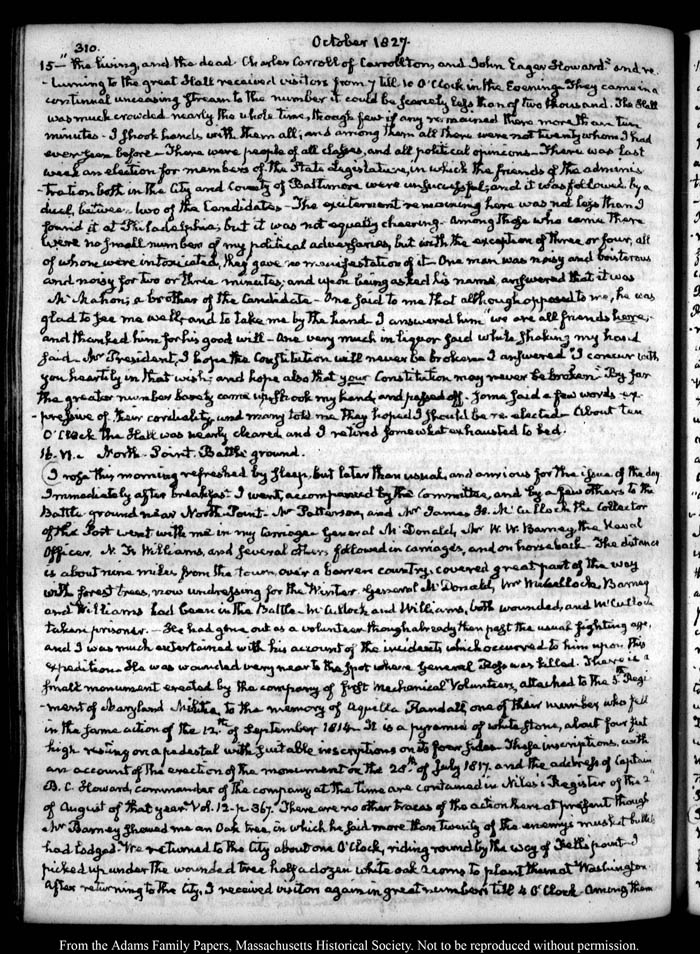 310. October 1827.
15— "the living, and the dead Charles Carroll of Carrollton, and John Eager Howard" and re-
-turning to the great Hall received visitors from 7 till 10 O'Clock in the Evening. They came in a
continual unceasing stream to the number it could be scarcely less than of two thousand. The Hall
was much crowded nearly the whole time, though few if any remained there more than ten
minutes - I shook hands with them all; and among them all there were not twenty whom I had
ever seen before - There were people of all classes, and all political opinions - There was last
week an election for members of the State Legislature, in which the friends of the adminis-
-tration both in the City and County of Baltimore were unsuccessful; and it was followed by a
duel, between two of the Candidates - The excitement remaining here was not less than I
found it at Philadelphia; but it was not equally cheering - Among those who came there
were no small number of my political adversaries, but with the exception of three or four, all
of whom were intoxicated, they gave no manifestation of it - One man was noisy and boisterous
and noisy for two or three minutes, and upon being asked his name, answered that it was
McMahon; a brother of the Candidate - One said to me that although opposed to me, he was
glad to see me well, and to take me by the hand - I answered him "we are all friends here,"
and thanked him for his good will - One very much in liquor said while shaking my hand
said - Mr President, I hope the Constitution will never be broken - I answered "I concur with
you heartily in that wish; and hope also that your Constitution may never be broken." By far
the greater number barely came up, shook my hand, and passed off - Some said a few words ex-
-pressive of their cordiality, and many told me they hoped I should be re-elected - About ten
O'Clock the Hall was nearly cleared and I retired somewhat exhausted to bed.
16. VI. North-Point. Battle ground.
I rose this morning refreshed by sleep, but later than usual, and anxious for the issue of the day
Immediately after breakfast I went, accompanied by the Committee, and by a few others to the
Battle ground near North-Point - Mr Patterson, and Mr James H. McCulloch the Collector
of the Port went with me in my Carriage - General McDonald, Mr W. W. Barney the Naval
Officer, N. F. Williams, and several others followed in carriages, and on horseback - The distance
is about nine miles from the town, over a barren country, covered great part of the way
with forest trees, now undressing for the Winter. General McDonald, Mr McCullock, Barney
and Williams had been in the Battle - McCullock and Williams, both wounded, and McCulloch
taken prisoner. - He had gone out as a volunteer though already then past the usual fighting age,
and I was much entertained with his account of the incidents which occurred to him upon this
expedition - He was wounded very near to the spot where General Ross was killed. There is a
small monument erected by the company of first Mechanical Volunteers, attached to the 5th Regi-
-ment of Maryland Militia, to the memory of Aquilla Randall, one of their number who fell
in the same action of the 12th of September 1814 - It is a pyramid of white stone, about four feet
high resting on a pedestal with suitable inscriptions on its four sides. These inscriptions, with
an account of the erection of the monument on the 28th of July 1817. and the address of Captain
B. C. Howard, commander of the company at the time are contained in Niles's Register of the 2d
of August of that year Vol. 12 - p. 367. There are no other traces of the action here at present though
Mr Barney showed me an Oak tree, in which he said more than twenty of the enemy's musket bullets
had lodged. We returned to the City about one O'Clock, riding round by the way of Fells point - I
picked up under the wounded tree half a dozen white oak acorns to plant them at Washington
After returning to the City, I received visitors again in great numbers till 4 O'Clock - Among them
From the Adams Family Papers, Massachusetts Historical Society. Not to be reproduced without permission.